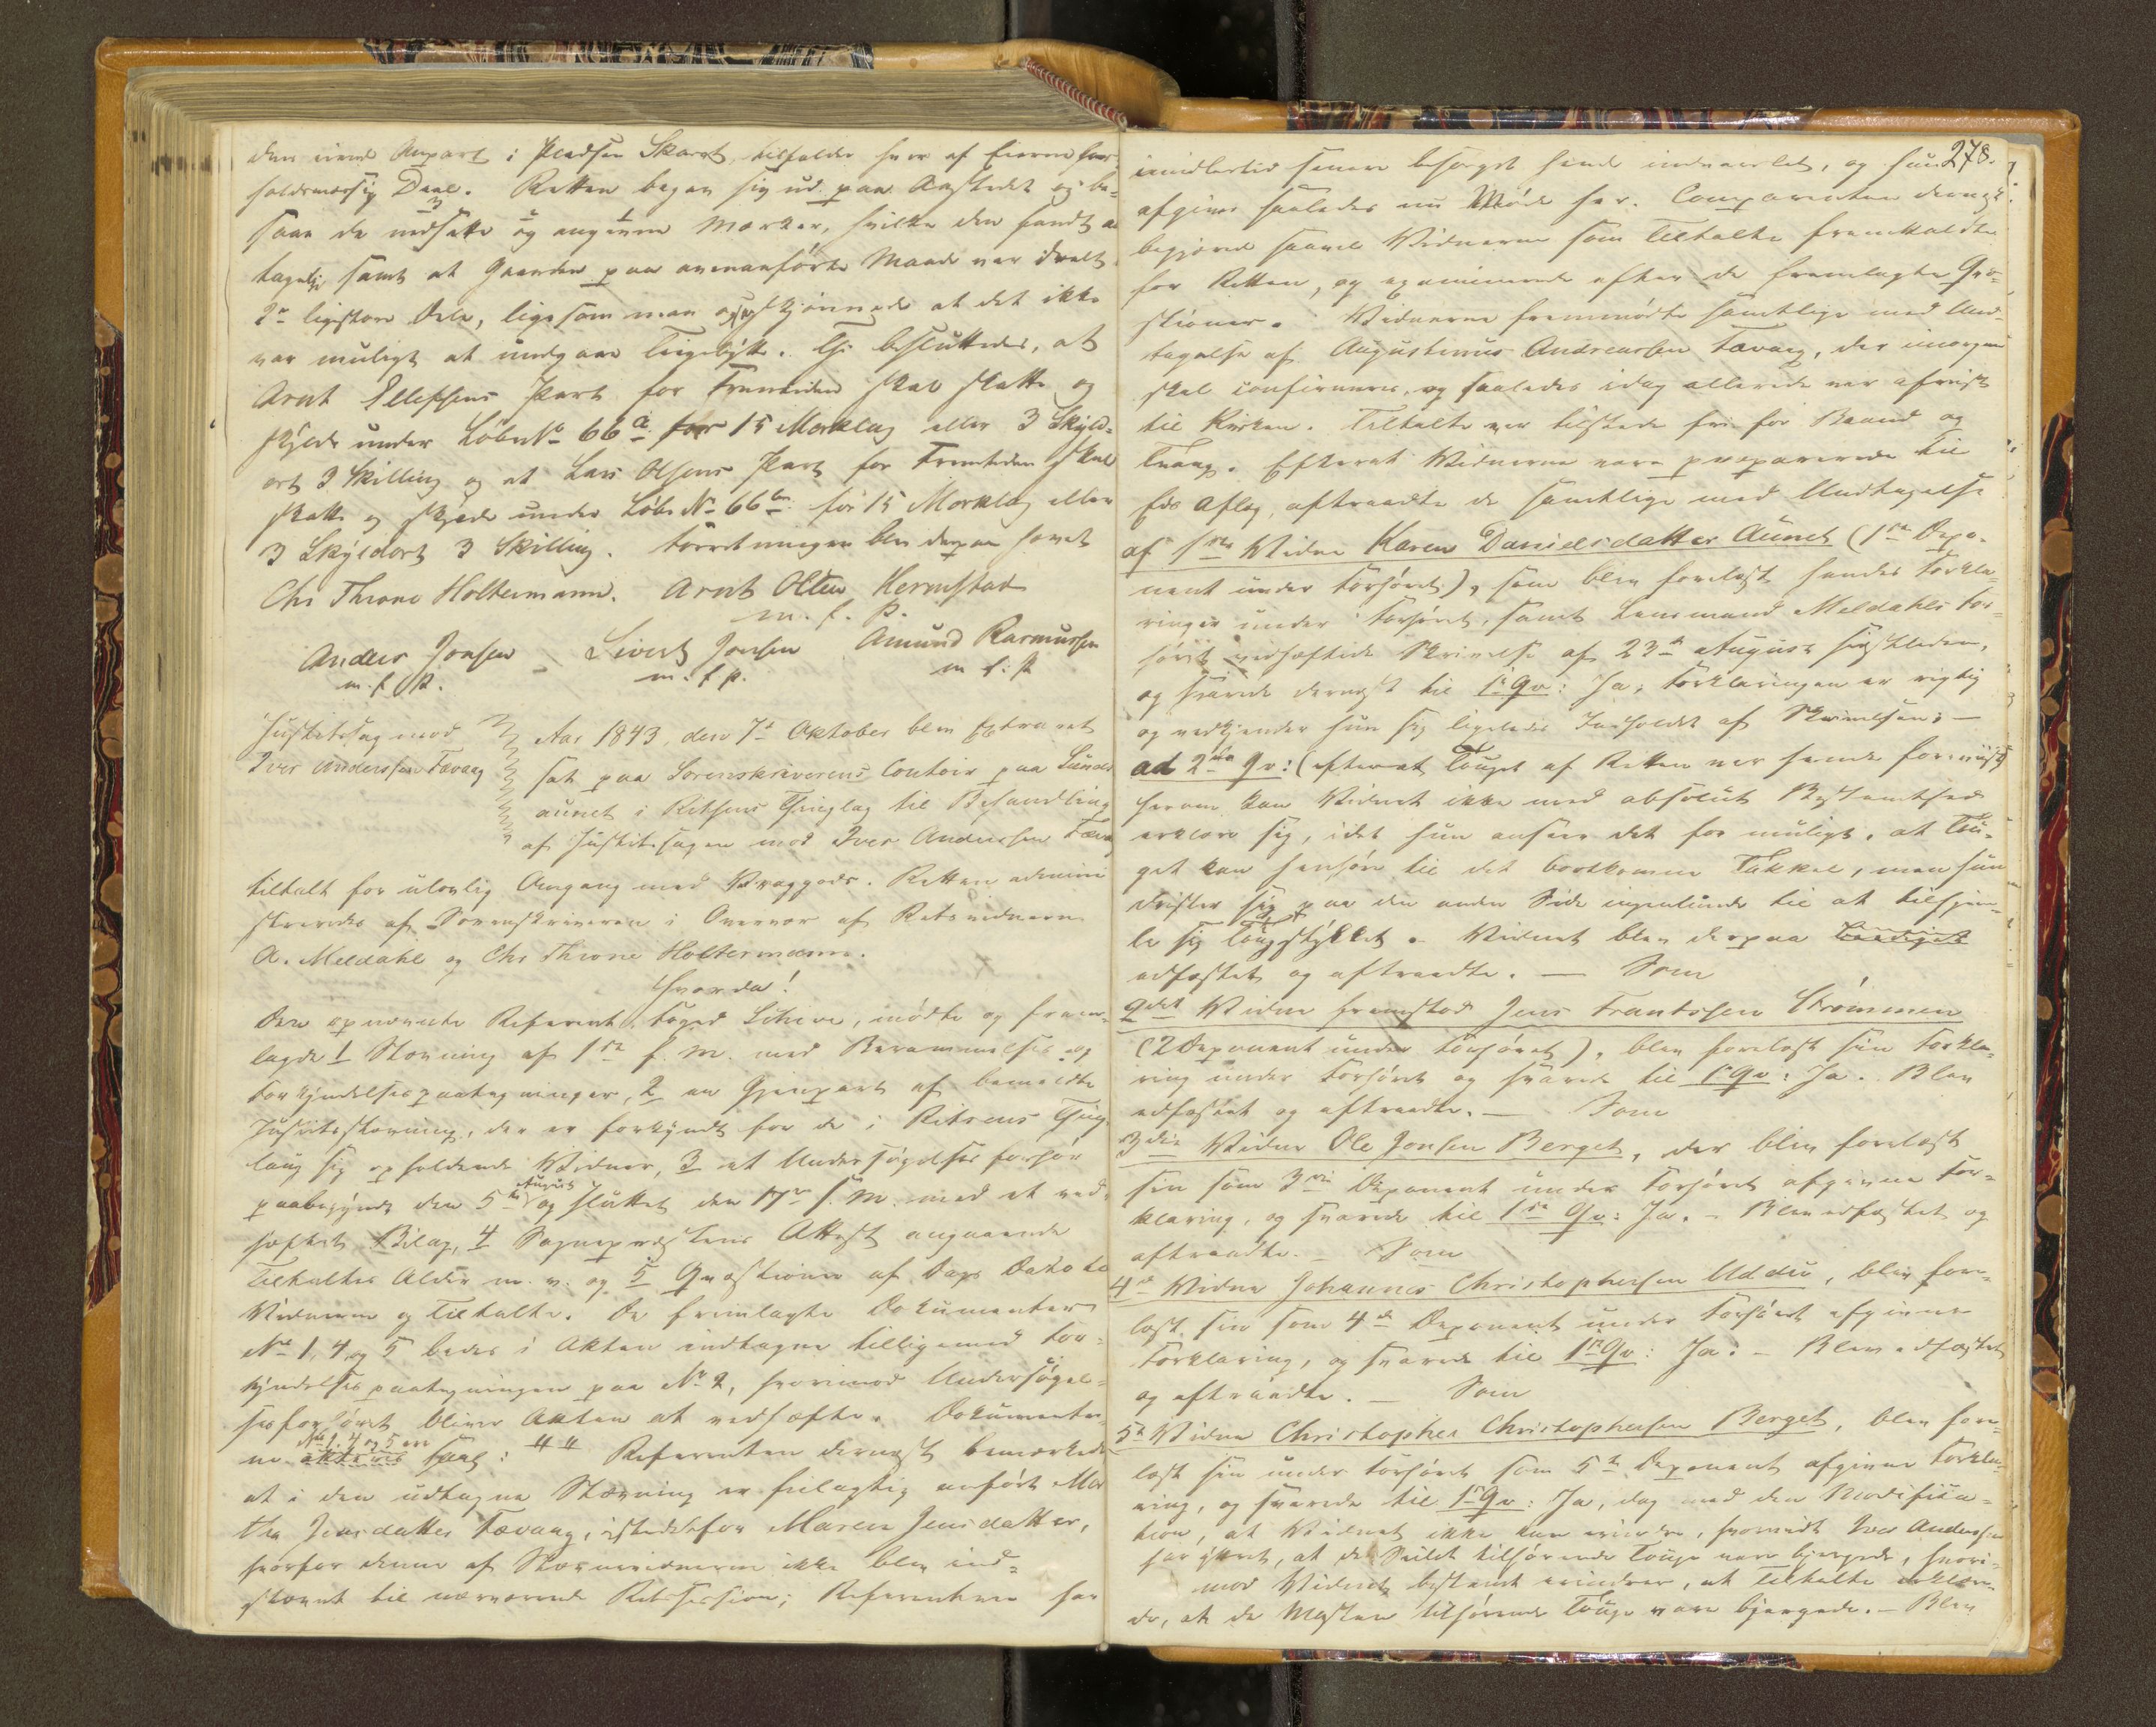 den eiende Anpart i Pladsen Skaret, tilfalder hver af Eierne for-
holdsmæssig Deel. Retten begav sig ud paa Aastedet og be-
saae de nedsatte og angivne Mærker, hvilke den fandt an-
tagelige samt at Gaarden paa ovenanførte Maade var deelt
2de ligestore Dele, ligesom man og skjønnede at det ikke
var muligt at undgaae Teigebytte. Thi besluttedes, at
Arnt Ellefsens Part for Fremtiden skal skatte og
skylde under Løbe No 66 a. for 15 Marklag eller 3 Skyld-
ort 3 Skilling og at Lars Olsens Part for Fremtiden skal
skatte og skylde under Løbe No 66 b. for 15 Marklag eller
3 Skyldort 3 Skilling. Forretningen blev derpaa hævet
Chr Throne Holtermann. Arnt Olsen Hermstad
m. f. P.
Anders Jonsen Sivert Jonsen Amund Rasmussen
m. f. P. m. f. P. m. f. P.
Justitssag mod
Iver Anderssen Tævaag
Aar 1843, den 7de Oktober blev Extraret
sat paa Sorenskriverens Contoir paa Sunds
aunet i Ritsens Thinglag til Behandling
af Justitssagen mod Iver Anderssen Tævaag
tiltalt for ulovlig Omgang med Vraggods. Retten admini
streredes af Sorenskriveren i Overvær af Retsvidnerne
A. Meldahl og Chr Throne Holtermann.
Hvorda!
Den opnævnte Referent, Foged Schive, mødte og frem-
lagde 1 Stævning af 1ste f. M. med Berammelses og
Forkyndelsespaategninger, 2 en Gjenpart af bemeldte
Justitsstævning, der er forkyndt for de i Ritsens Thing
laug sig opholdende Vidner, 3 et Undersøgelsesforhør
paabegyndt den 5te August og sluttet den 17de s. M. med et ved-
hæftet Bilag, 4 Sognepræstens Attest angaaende
Tiltaltes Alder m. v. og 5 Qvæstioner af Dags Dato til
Vidnerne og Tiltalte. De fremlagte Dokumenter
No 1, 4 og 5 bedes i Akten indtagne tilligemed For-
kyndelsespaategningen paa No 2, hvorimod Undersøgel-
sesforhøret bliver Akten at vedhæfte. Dokumenter-
No 1. 4 og 5 ere
ne saal: # # Referenten dernæst bemærkede
at i den udtagne Stævning er feilagtig anført Mar
tha Jensdatter Tævaag, istedetfor Maren Jensdatter,
hvorfor denne af Stævnevidnerne ikke blev ind-
stævnt til nærværende Retssession; Referenten har
278.
imidlertid senere besørget hende indvarslet, og hun
afgiver saaledes nu Møde her. Comparenten dernæst
begjærede saavel Vidnerne som Tiltalte fremkaldte
for Retten, og examinerede efter de fremlagte Qvæ-
stioner. Vidnerne fremmødte samtlige med Und-
tagelse af Augustinus Andreassen Tævaag, der imorgen
skal confirmeres, og saaledes idag allerede var afreist
til Kirken. Tiltalte var tilstede fri for Baand og
Tvang. Efterat Vidnerne vare præparerede til
Eds Aflæg, aftraadte de samtlige med Undtagelse
af 1ste Vidne Karen Danielsdatter Aunet (1ste Depo-
nent under Forhøret), som blev forelæst hendes Forkla-
ringer under Forhøret, samt Lensmand Meldahls For-
høret vedhæftede Skrivelse af 23de August sidstleden,
og svarede dernæst til 1ste Qv: Ja, Forklaringen er rigtig
og vedkjender hun sig ligeledes Indholdet af Skrivelsen; —
ad 2den Qv: (efterat Touget af Retten var hende foreviist)
herom kan Vidnet ikke med absolut Bestemthed
erklære sig, idet hun anseer det for muligt, at Tou-
get kan henhøre til det bortkomne Takkel, men hun
drister sig paa den anden Side ingenlunde til at tilhjem-
le sig Tougstykket. Vidnet blev derpaa
edfæstet og aftraadte. — Som
2det Vidne fremstod Jens Frantssen Strømmen
(2 Deponent under Forhøret), blev forelæst sin Forkla-
ring under Forhøret og svarede til 1ste Qv: Ja. Blev
edfæstet og aftraadte. — Som
3die Vidne Ole Jonsen Berget, der blev forelæst
sin som 3die Deponent under Forhøret afgivne For-
klaring, og svarede til 1ste Qv: Ja. — Blev edfæstet og
aftraadte. — Som
4de Vidne Johannes Christophersen Uddu, blev fore-
læst sin som 4de Deponent under Forhøret afgivne
Forklaring, og svarede til 1ste Qv: Ja. — Blev edfæstet
og aftraadte. — Som
5te Vidne Christopher Christophersen Berget, blev fore-
læst sin under Forhøret som 5te Deponent afgivne Forkla-
ring, og svarede til 1ste Qv: Ja, dog med den Modifica-
tion, at Vidnet ikke kan erindre, hvorvidt Iver Anderssen
har yttret, at de Seilet tilhørende Touge vare bjergede, hvori-
mod Vidnet bestemt erindrer, at Tiltalte erklære-
de, at de Masten tilhørende Touge vare bjergede. — Blev